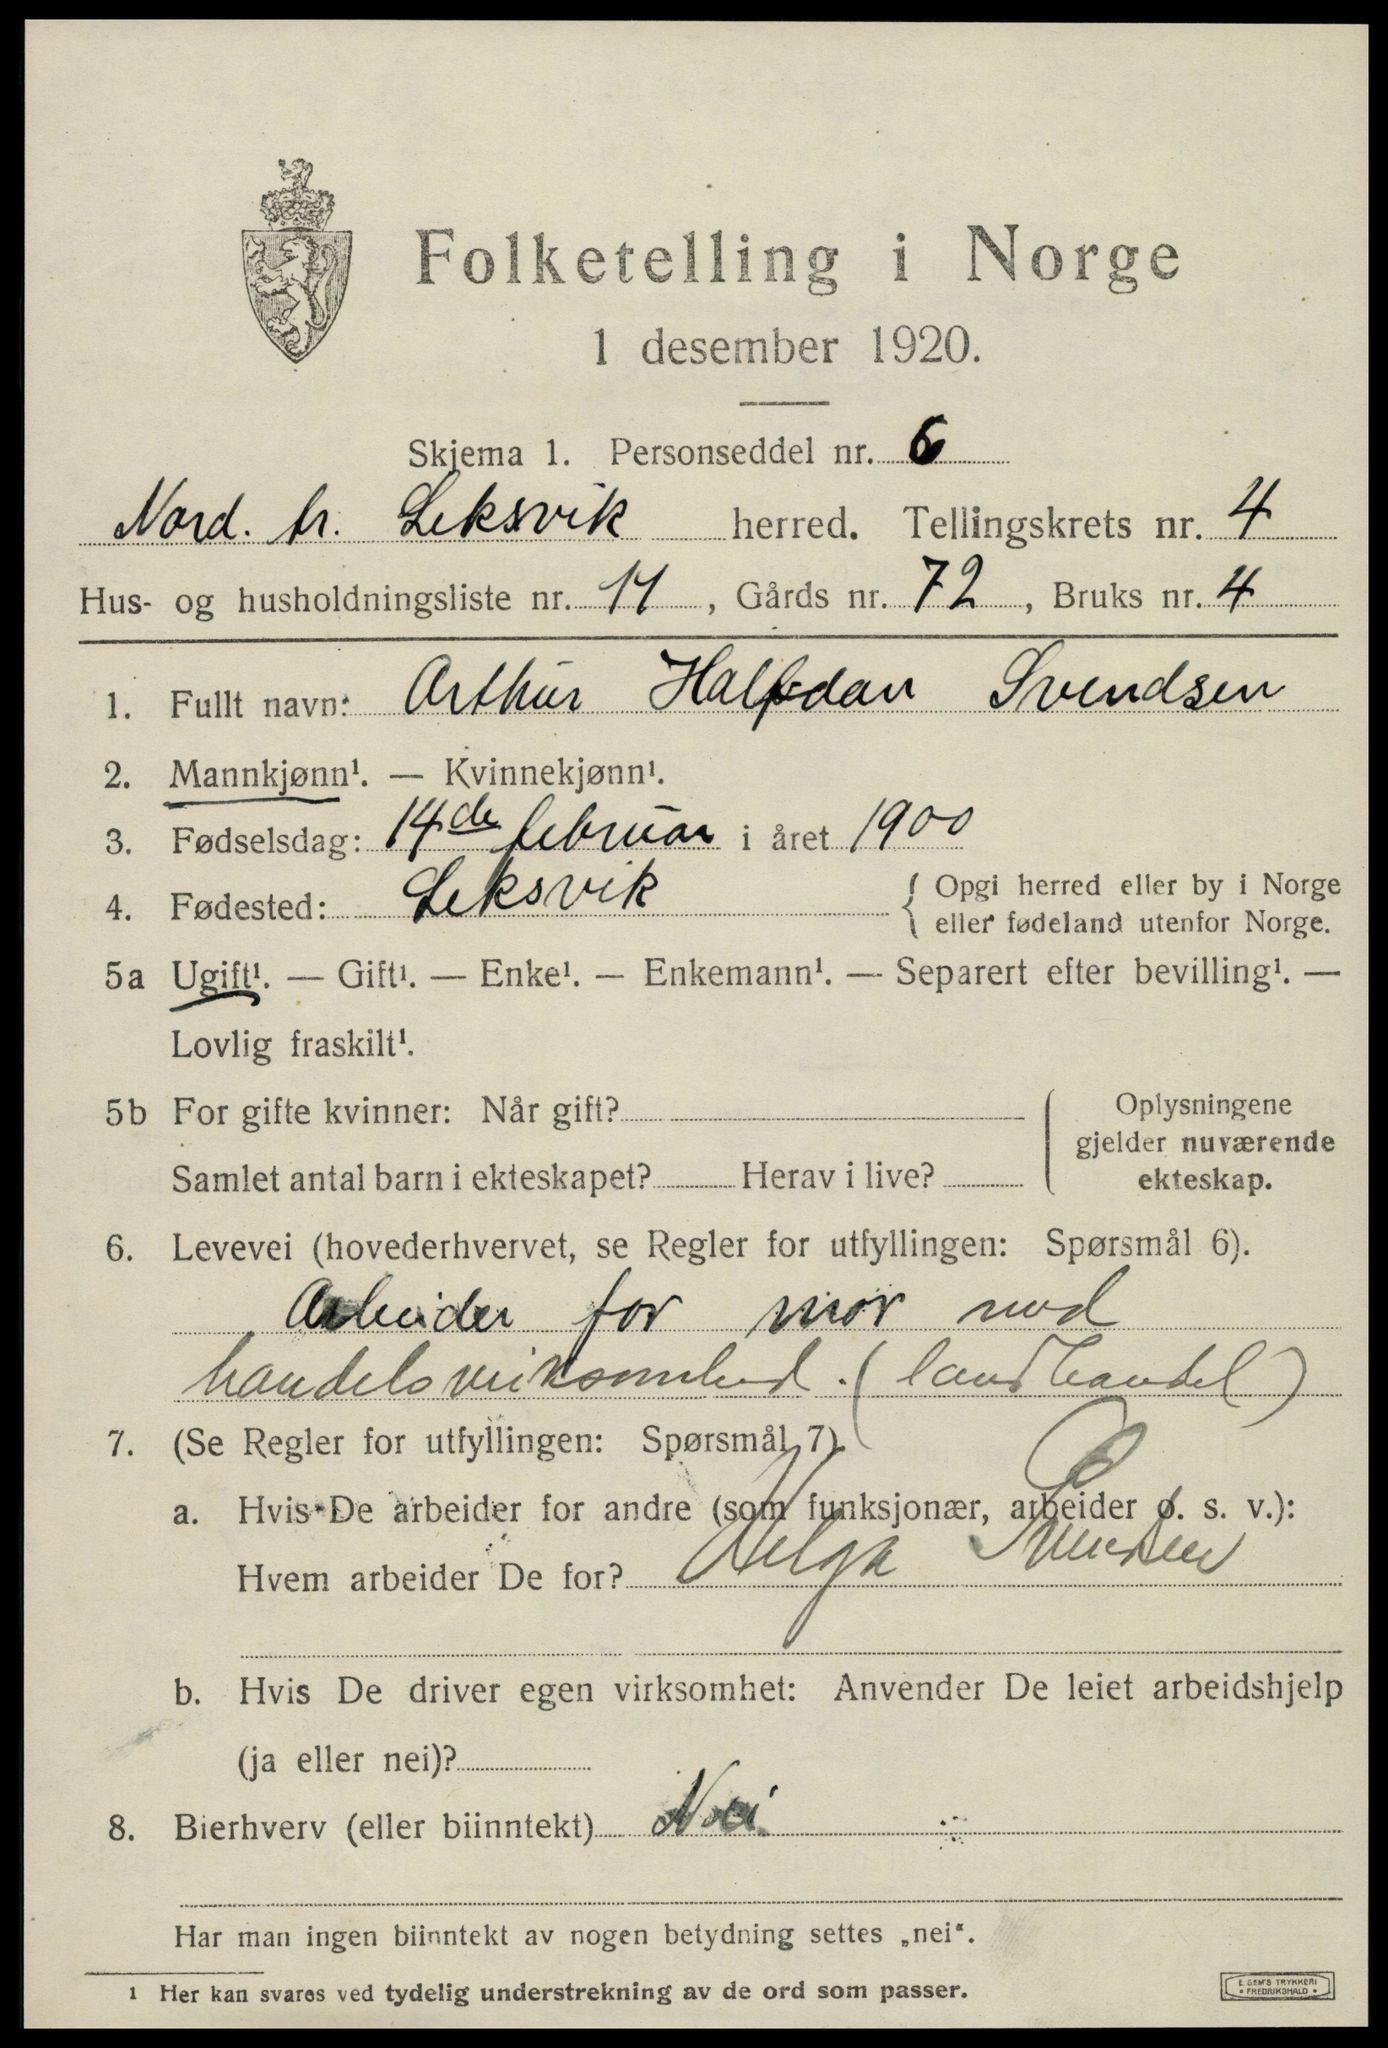 Folketelling i Norge
1 desember 1920.
Skjema 1. Personseddel nr. 6
Nord. tr. Leksvik herred. Tellingskrets nr. 4
Hus- og husholdningsliste nr. 14, Gårds nr. 72, Bruks nr. 4
1. Fullt navn: Arthur Halfdan Svendsen
2. Mannkjønn¹. — Kvinnekjønn¹.
3. Fødselsdag: 14de februar i året 1900
4. Fødested: Leksvik { Opgi herred eller by i Norge
eller fødeland utenfor Norge.
5a Ugift¹. — Gift¹. — Enke¹. — Enkemann¹. — Separert efter bevilling¹. —
Lovlig fraskilt¹.
5b For gifte kvinner: Når gift?
Samlet antal barn i ekteskapet? Herav i live?
Oplysningene
gjelder nuværende
ekteskap.
6. Levevei (hovederhvervet, se Regler for utfyllingen: Spørsmål 6).
Arbeider for mor med
handelsvirksomhed. (landhandel)
7. (Se Regler for utfyllingen: Spørsmål 7)
a. Hvis De arbeider for andre (som funksjonær, arbeider o. s. v.):
Hvem arbeider De for? Helga Svendsen
b. Hvis De driver egen virksomhet: Anvender De leiet arbeidshjelp
(ja eller nei)?
8. Bierhverv (eller biinntekt) Nei
Har man ingen biinntekt av nogen betydning settes „nei“.
1 Her kan svares ved tydelig understrekning av de ord som passer.
E. SEM'S TRYKKERI
• FREDRIKSHALD •